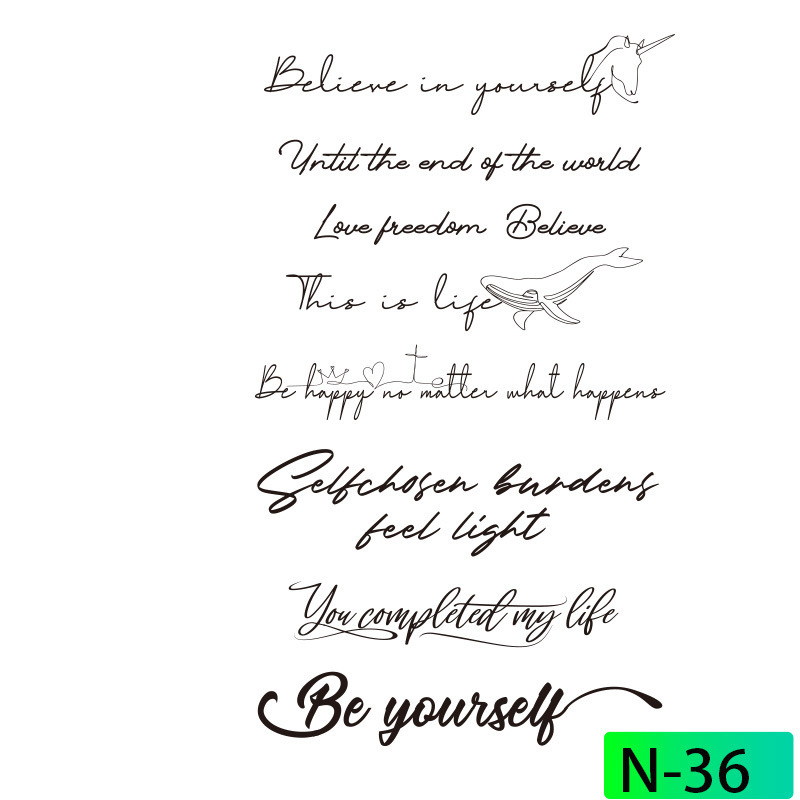 Believe in yourself
Until the end of the world
Love freedom Believe
This is life
Be happy no matter what happens
Selfchosen burdens
feel light
You completed my life
Be yourself
N-36